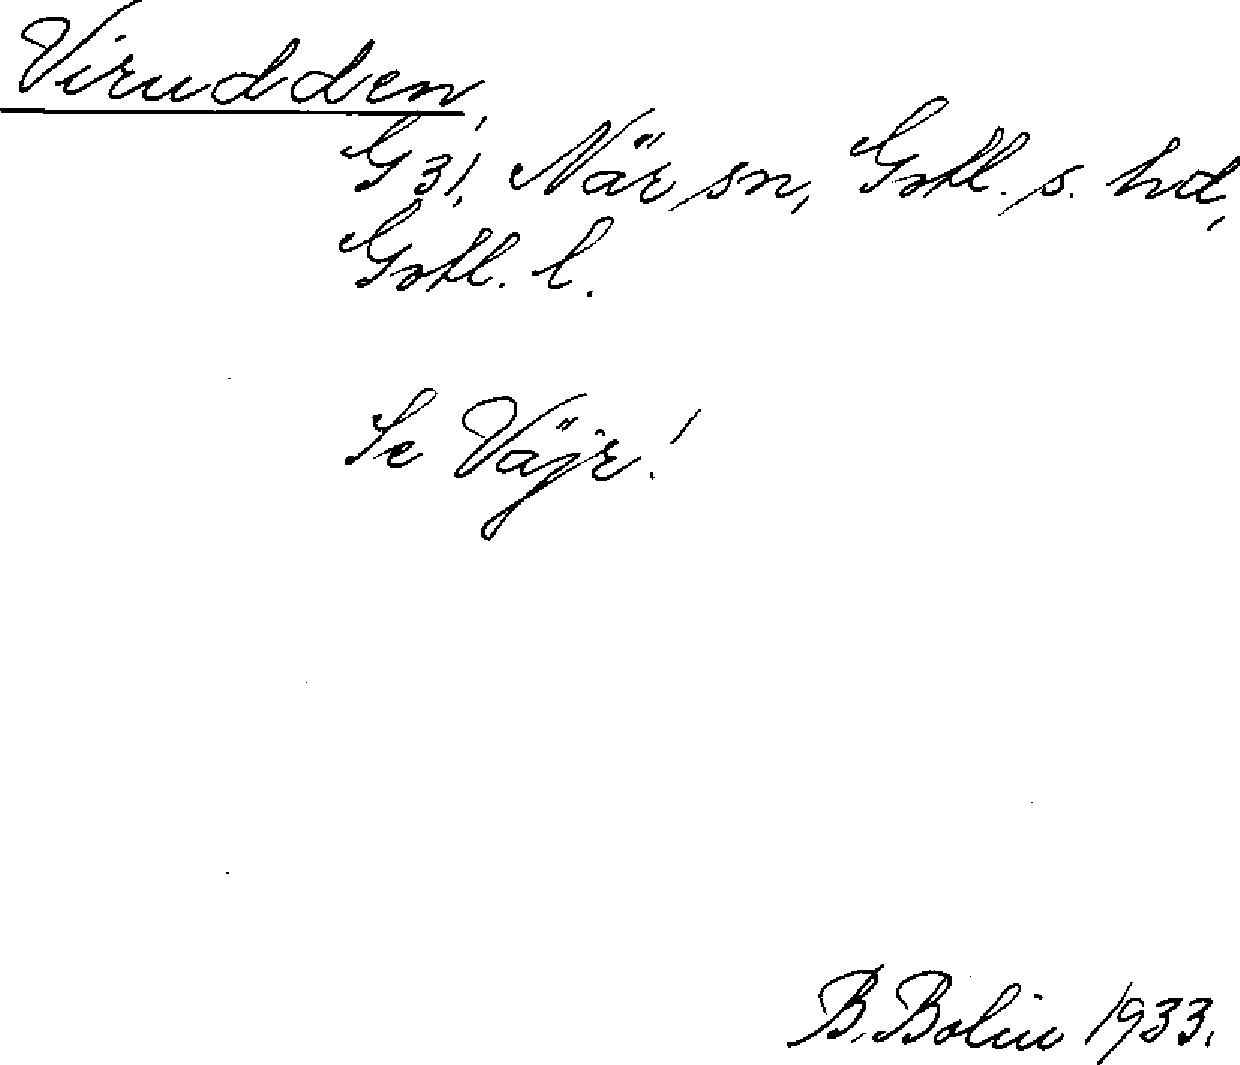 Virudden,
G 3!, När sn, Gotl. s. hd,
Gotl. l.
Se Väjr!
B. Bolin 1933.